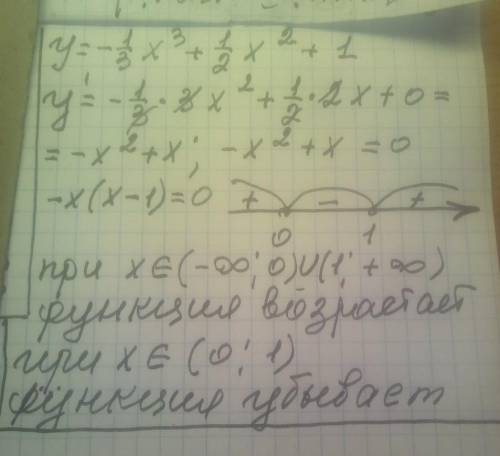 y = -1/3 x³ + 1/2 x² + 1
y' = -1/3 · 3x² + 1/2 · 2x + 0 =
= -x² + x; -x² + x = 0
-x(x-1) = 0 + - + 
0 1
при x ∈ (-∞; 0)∪(1; +∞)
функция возрастает
при x ∈ (0; 1)
функция убывает